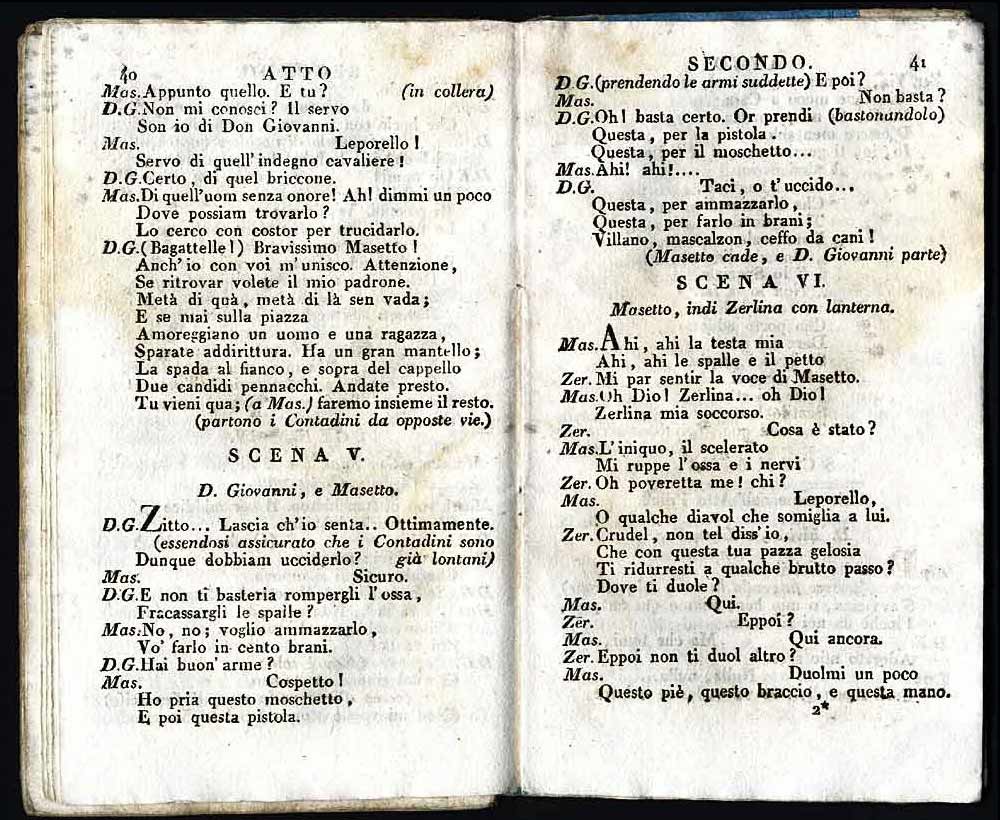 40 ATTO
Mas. Appunto quello. E tu? (in collera)
D.G. Non mi conosci? Il servo
Son io di Don Giovanni.
Mas. Leporello!
Servo di quell'indegno cavaliere!
D.G. Certo, di quel briccone.
Mas. Di quell'uom senza onore! Ah! dimmi un poco
Dove possiam trovarlo?
Lo cerco con costor per trucidarlo.
D.G. (Bagattelle!) Bravissimo Masetto!
Anch'io con voi m'unisco. Attenzione,
Se ritrovar volete il mio padrone.
Metà di quà, metà di là sen vada;
E se mai sulla piazza
Amoreggiano un uomo e una ragazza,
Sparate addirittura. Ha un gran mantello;
La spada al fianco, e sopra del cappello
Due candidi pennacchi. Andate presto.
Tu vieni qua; (a Mas.) faremo insieme il resto.
(partono i Contadini da opposte vie.)
SCENA V.
D. Giovanni, e Masetto.
D.G. Zitto... Lascia ch'io senta.. Ottimamente.
(essendosi assicurato che i Contadini sono
Dunque dobbiam ucciderlo? già lontani)
Mas. Sicuro.
D.G. E non ti basteria rompergli l'ossa,
Fracassargli le spalle?
Mas. No, no; voglio ammazzarlo,
Vo' farlo in cento brani.
D.G. Hai buon'arme?
Mas. Cospetto!
Ho pria questo moschetto,
E poi questa pistola.
SECONDO. 41
D.G. (prendendo le armi suddette) E poi?
Mas. Non basta?
D.G. Oh! basta certo. Or prendi (bastonandolo)
Questa, per la pistola.
Questa, per il moschetto...
Mas. Ahi! ahi!....
D.G. Taci, o t'uccido...
Questa, per ammazzarlo,
Questa, per farlo in brani;
Villano, mascalzon, ceffo da cani!
(Masetto cade, e D. Giovanni parte)
SCENA VI.
Masetto, indi Zerlina con lanterna.
Mas. Ahi, ahi la testa mia
Ahi, ahi le spalle e il petto
Zer. Mi par sentir la voce di Masetto.
Mas. Oh Dio! Zerlina... oh Dio!
Zerlina mia soccorso.
Zer. Cosa è stato?
Mas. L'iniquo, il scelerato
Mi ruppe l'ossa e i nervi
Zer. Oh poveretta me! chi?
Mas. Leporello,
O qualche diavol che somiglia a lui.
Zer. Crudel, non tel diss'io,
Che con questa tua pazza gelosia
Ti ridurresti a qualche brutto passo?
Dove ti duole?
Mas. Qui.
Zer. Eppoi?
Mas. Qui ancora.
Zer. Eppoi non ti duol altro?
Mas. Duolmi un poco
Questo piè, questo braccio, e questa mano.
2*